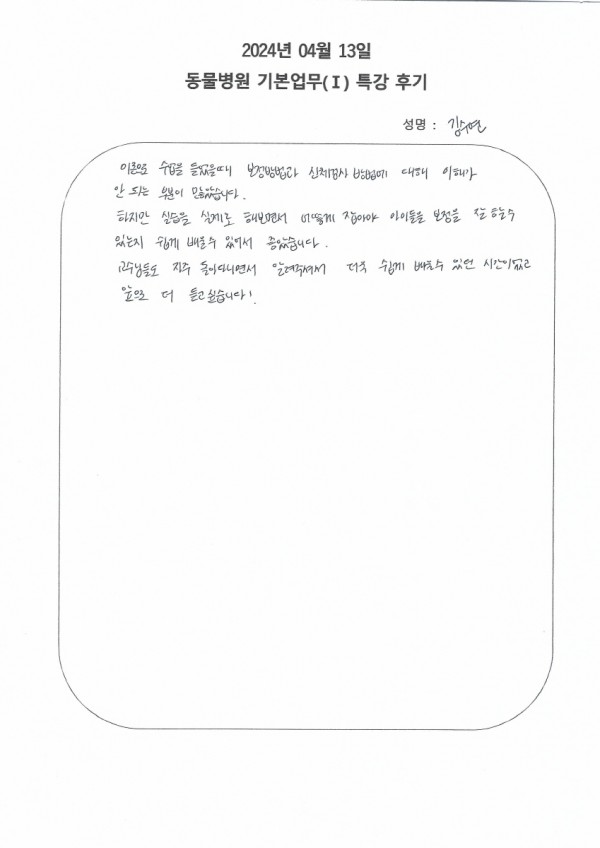 2024년 04월 13일
동물병원 기본업무(Ⅰ) 특강 후기
성명 : 김수연
이론으로 수업을 들었을때 보정방법과 신체검사 방법에 대해 이해가
안 되는 부분이 많았습니다.
하지만 실습을 실제로 해보면서 어떻게 잡아야 아이들을 보정을 잘 할수
있는지 쉽게 배울수 있어서 좋았습니다.
교수님들도 자주 돌아다니면서 알려주셔서 더욱 쉽게 배울수 있던 시간이었고
앞으로 더 듣고싶습니다!